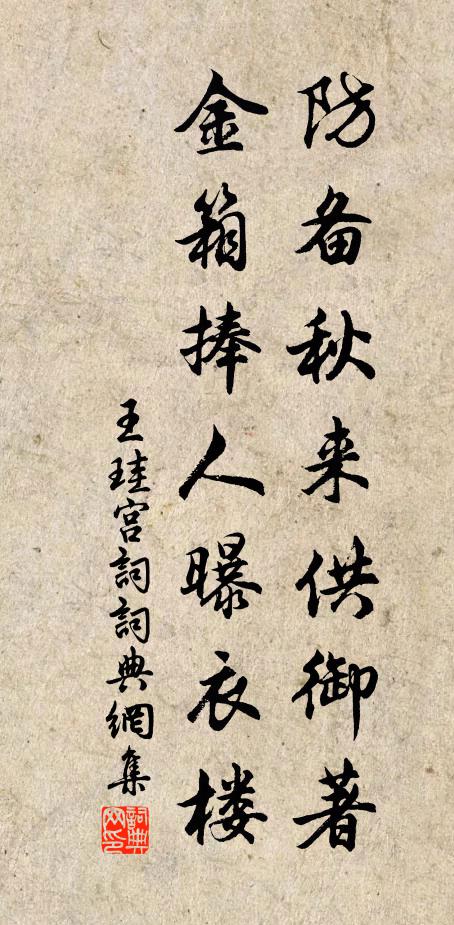 防备秋来供御著
金箱捧人曝衣楼
王珪宫詞詞典網集
詞典网印